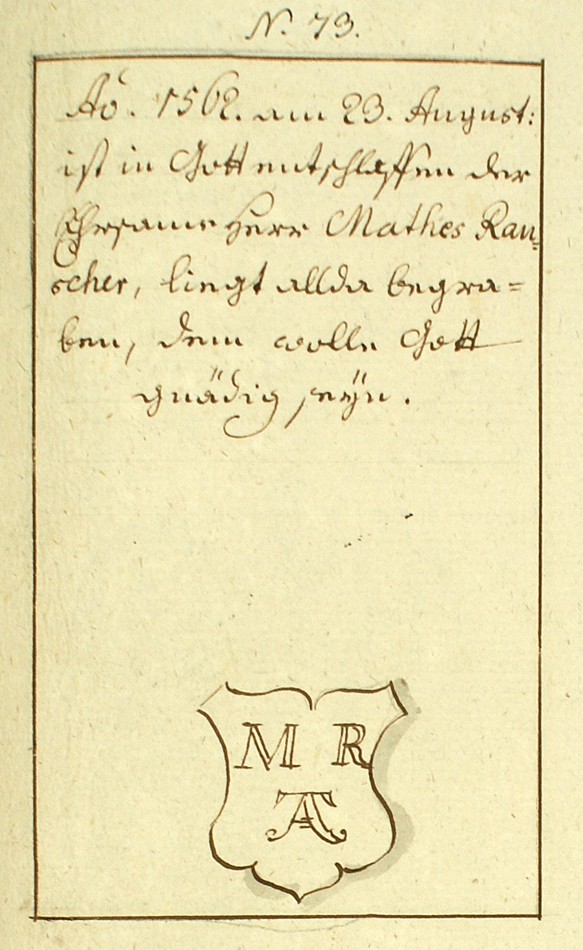 N. 73.
Aō. 1562. am 23. August:
ist in Gott entschlaffen der
Ehrsame Herr Mathes Rau=
scher, liegt allda begra=
ben, dem wolle Gott
gnädig seÿn.
M R